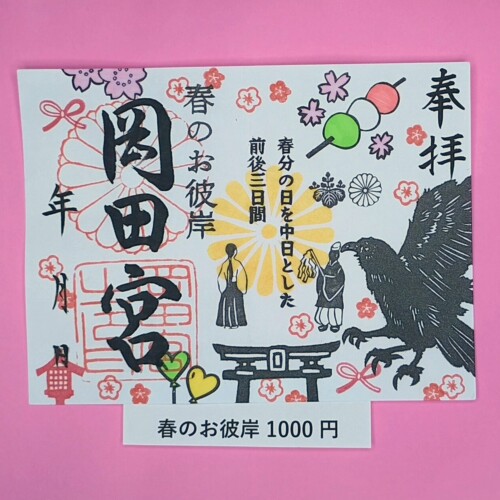 奉拝
春分の日を中日とした
前後三日間
春のお彼岸
岡田宮
年月日
春のお彼岸 1000 円